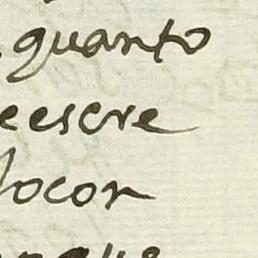 quanto
eescre
socor